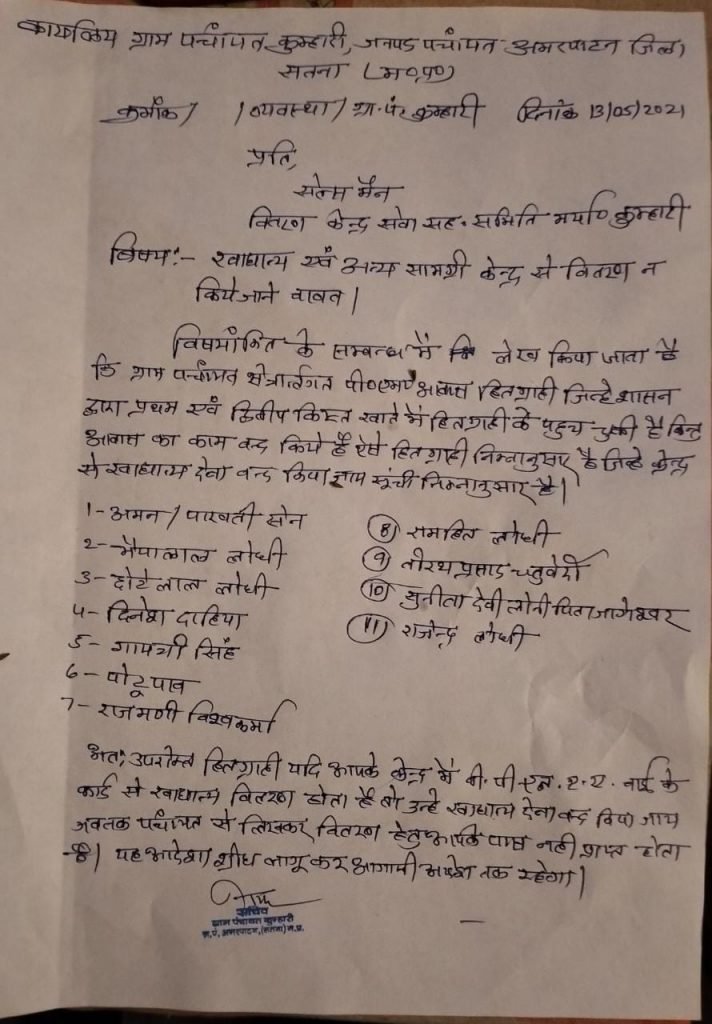 कार्यालय ग्राम पंचायत कुम्हारी, जनपद पंचायत अमरपाटन जिला
सतना (म०प्र०)
क्रमांक/ /व्यवस्था/ ग्रा.पं. कुम्हारी दिनांक 13/05/2021
प्रति,
सेल्स मैन
वितरण केन्द्र सेवा सह. समिति कुम्हारी
विषय:- खाद्यान्य एवं अन्य सामग्री केन्द्र से वितरण न
किये जाने वावत।
विषयांकित के सम्बन्ध में लेख किया जाता है
कि ग्राम पंचायत क्षेत्रार्न्तगत पी०एम० आवास हितग्राही जिन्हे शासन
द्वारा प्रथम एवं द्वितीय किस्त खाते में हितग्राही के पहुच चुकी है किन्तु
आवास का काम वन्द किये हैं ऐसे हितग्राही निम्नानुसार है जिन्हे केन्द्र
से खाद्यान्य देना वन्द किया जाय सूची निम्नानुसार है।
1- अमन / पारवती सेन
2- भैयालाल लोधी
3- छोटेलाल लोधी
4- दिनेश दाहिया
5- गायत्री सिंह
6-
7- राजमणी विश्वकर्मा
(8) रामहित लोधी
(9) तीरथ प्रसाद चतुर्वेदी
(10) सुनीता देवी लोनी पिता जागेश्वर
(11) राजेन्द्र लोधी
अतः उपरोक्त हितग्राही यदि आपके केन्द्र में वी.पी.एल. ए.ए. वाई के
कार्ड से खाद्यान्य वितरण होता है तो उन्हे खाद्यान्य देना वन्द किया जाय
जवतक पंचायत से लिखकर वितरण हेतु आपके पास नही प्राप्त होता
है। यह आदेश शीघ्र लागू कर आगामी आदेश तक रहेगा।
सचिव
ग्राम पंचायत कुम्हारी
ज.पं. अमरपाटन, (सतना) म.प्र.